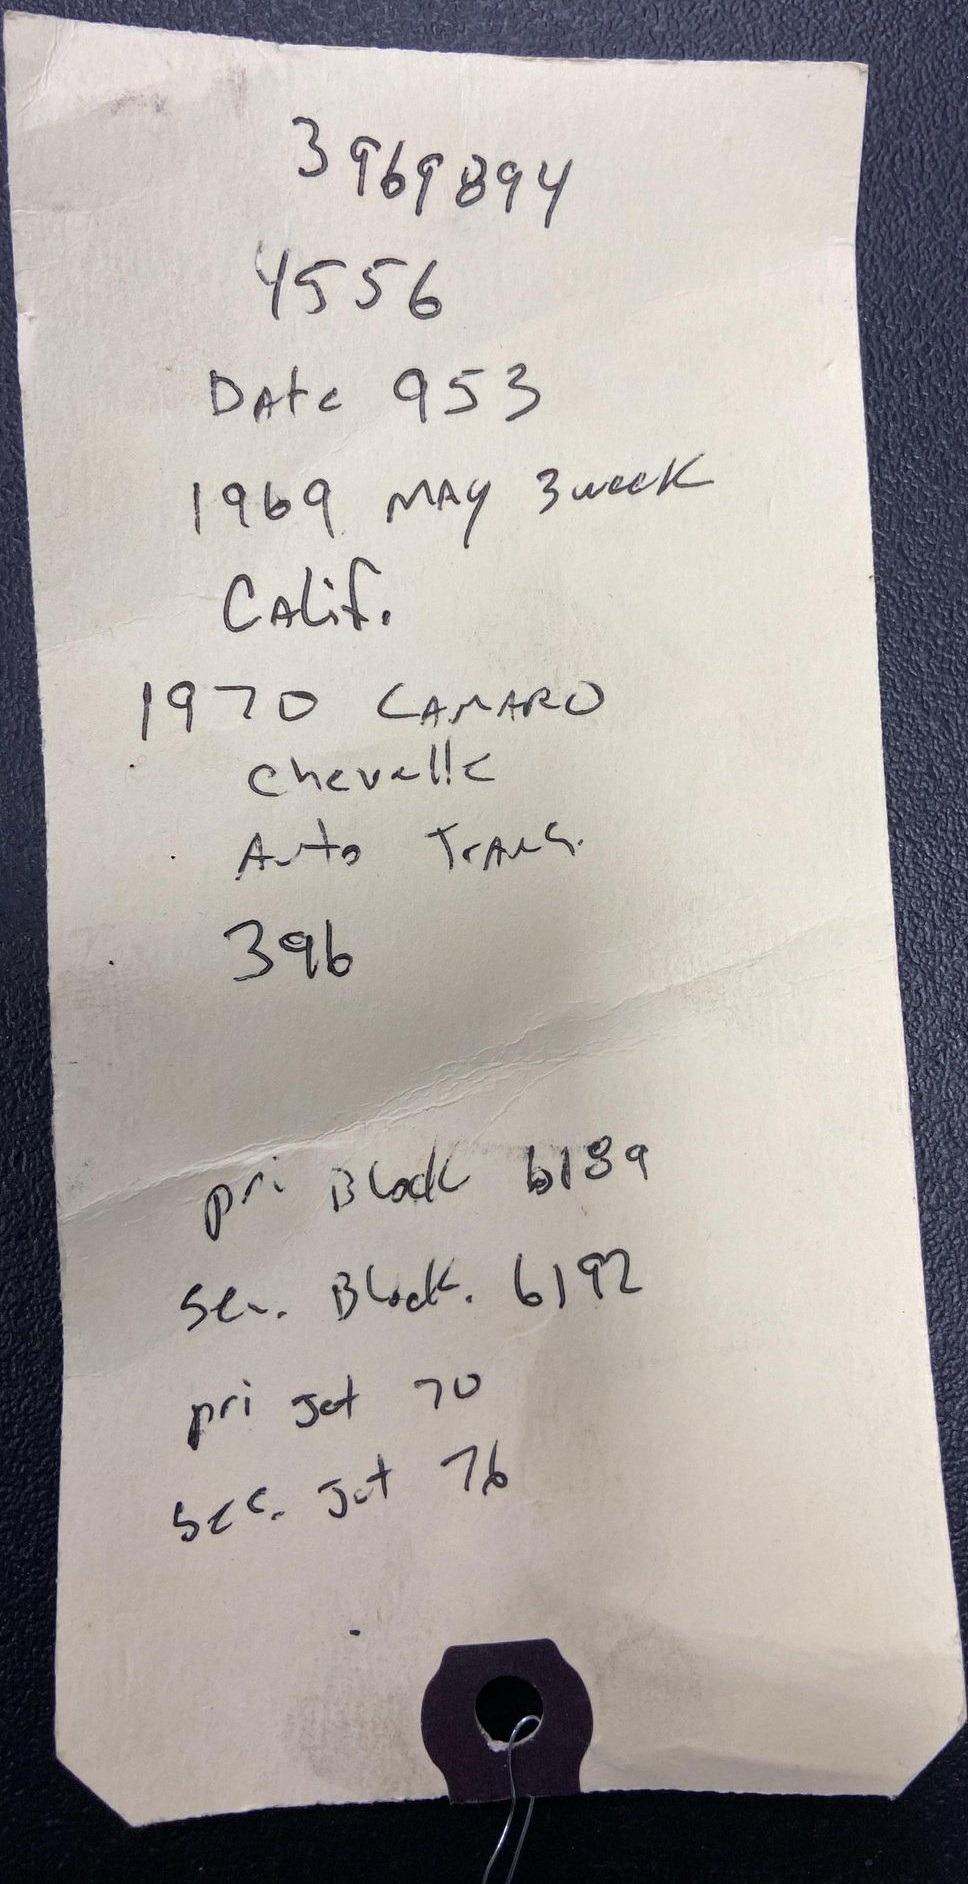 3969894
4556
Date 953
1969 MAY 3 week
Calif.
1970 CAMARO
Chevelle
Auto Trans.
396
pri Block 6189
Sec. Block. 6192
pri Jet 70
Sec. Jet 76